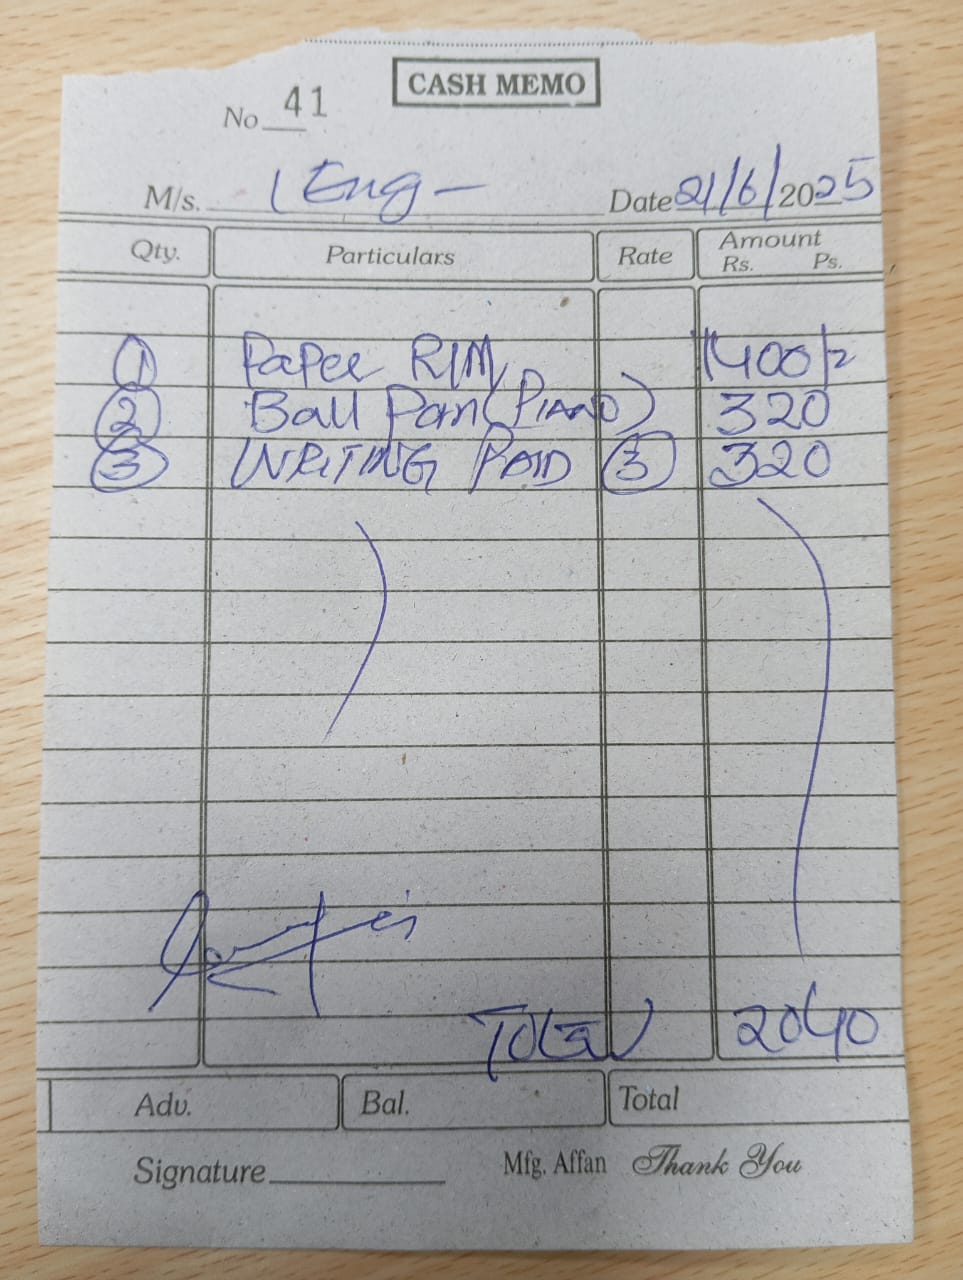 CASH MEMO
No 41
M/s. Eng - Date 21/6/2025
Qty. Particulars Rate Amount
Rs. Ps.
1 Paper RIM 1400/=
2 Ball Pan (PIANO) 320
3 WRITING PAD 3 320
Total 2040
Adv. Bal. Total
Signature Mfg. Affan Thank You